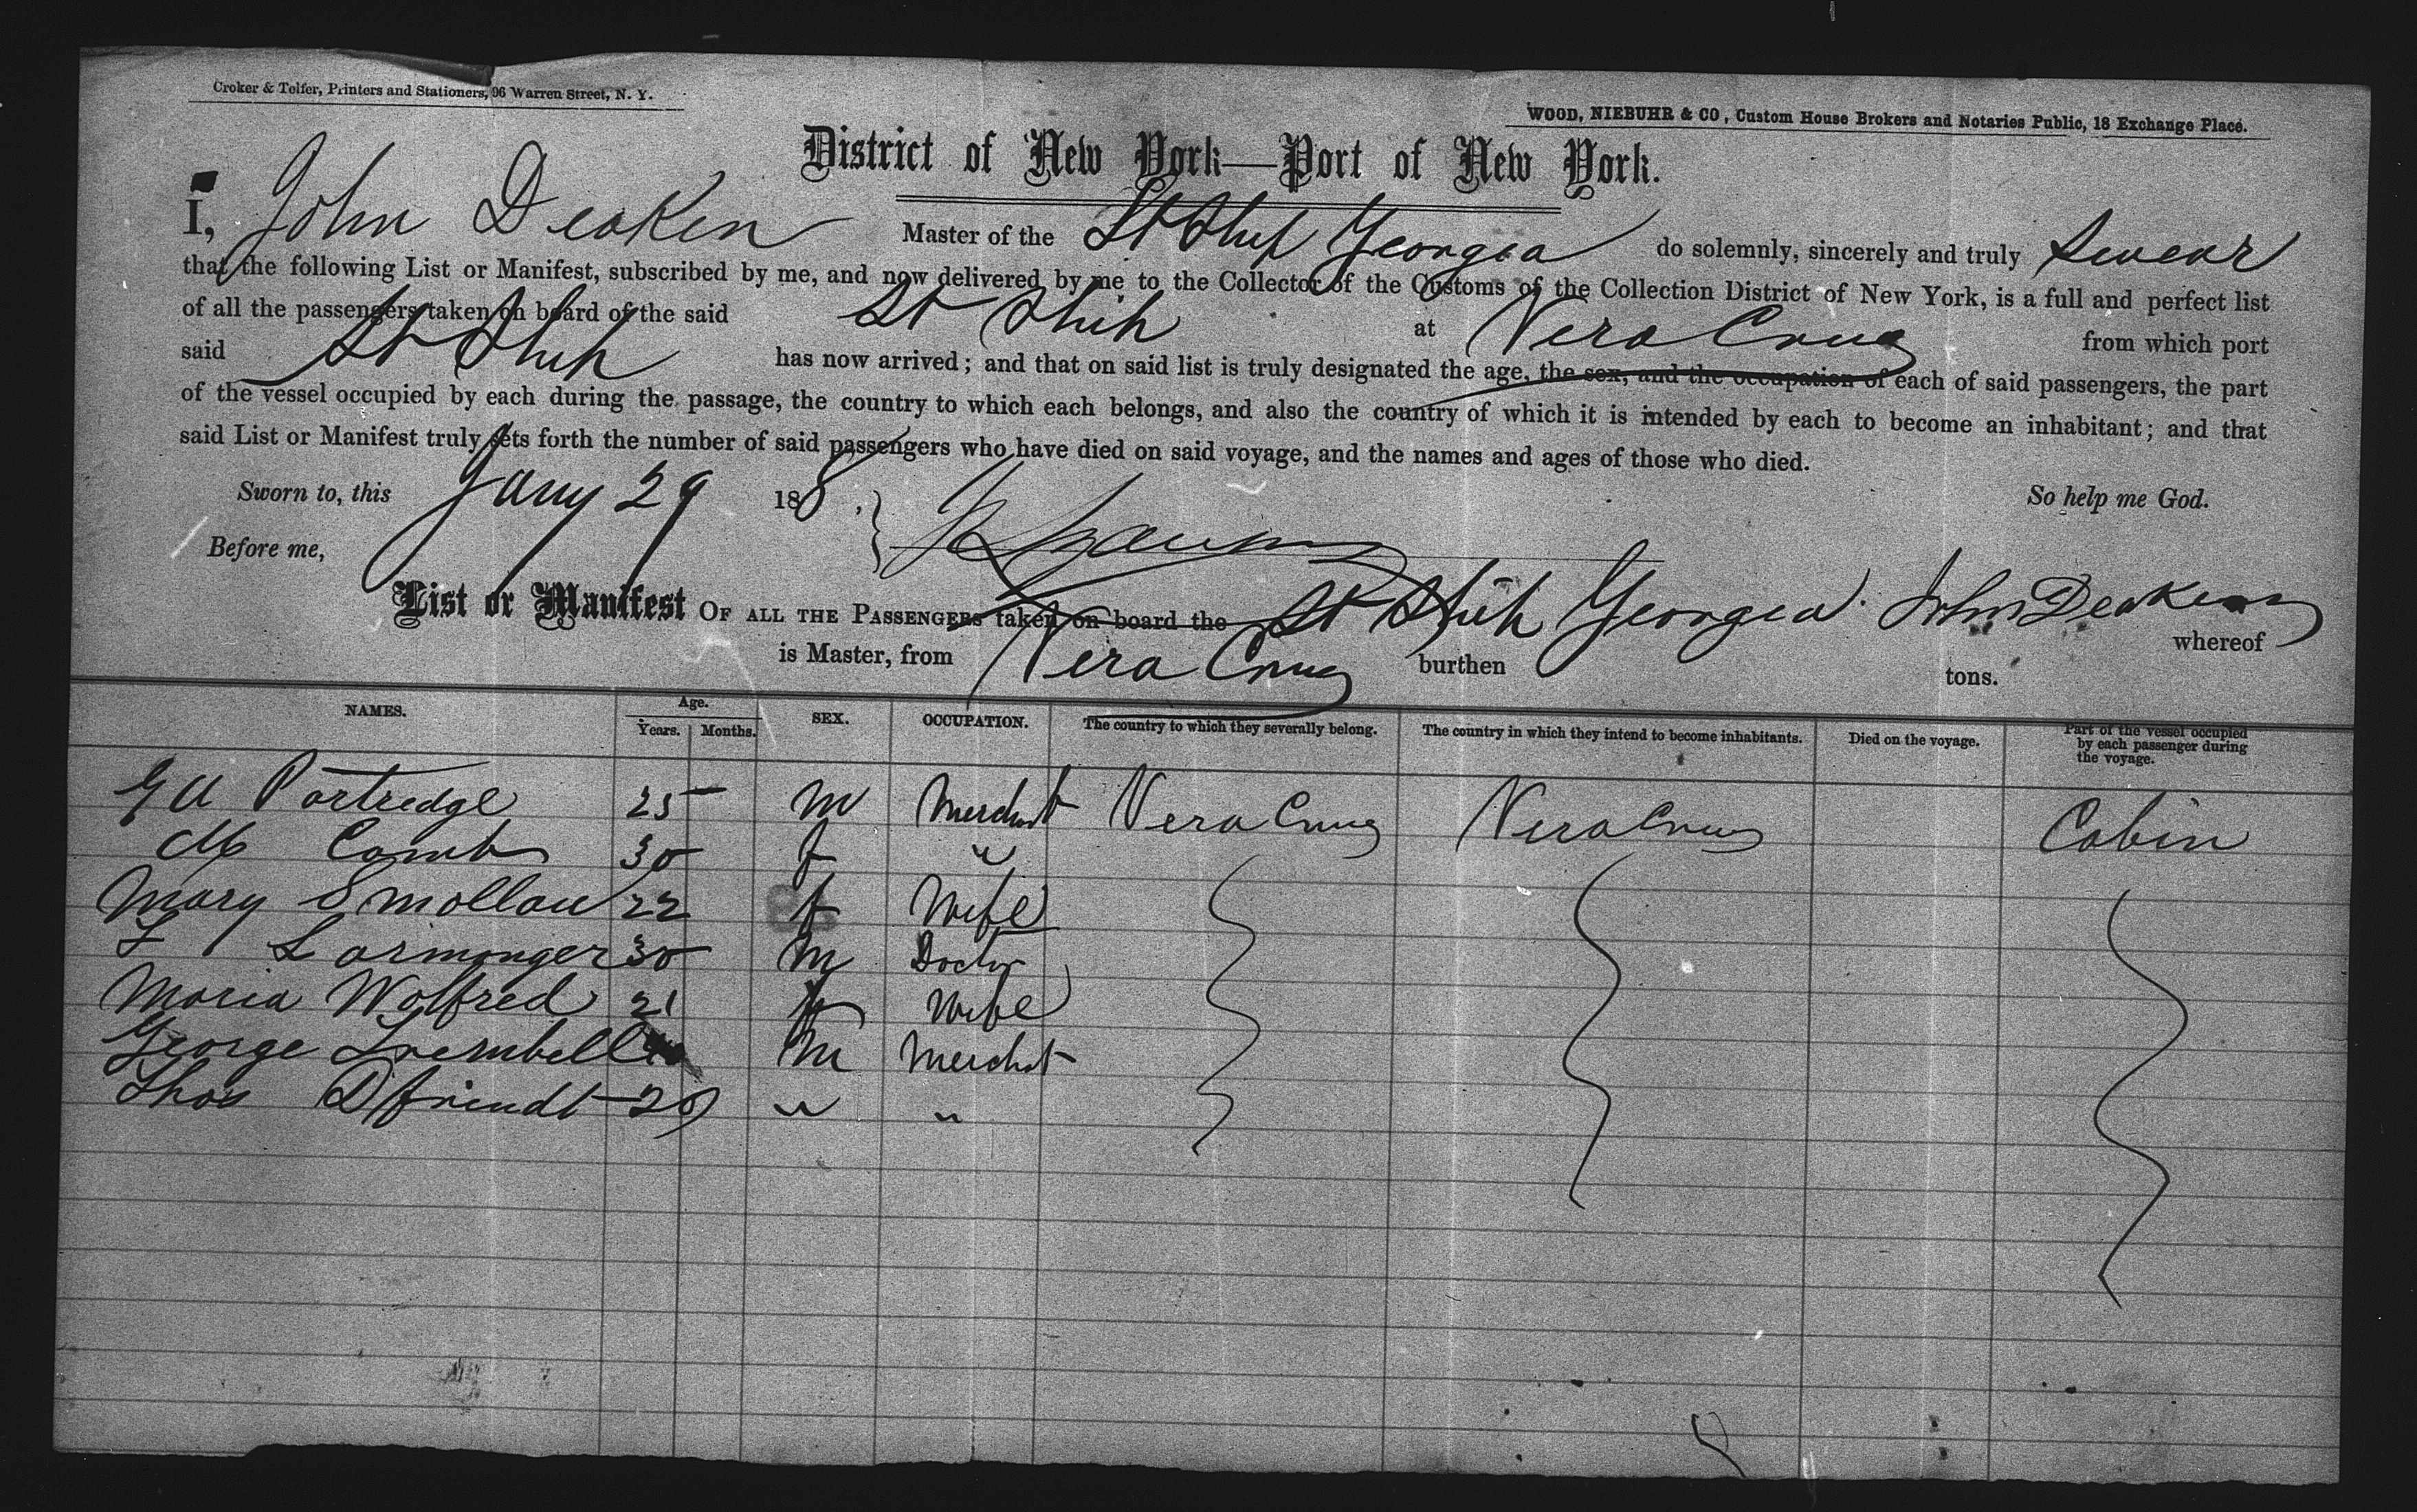 Croker & Telfer, Printers and Stationers, 96 Warren Street, N. Y.
WOOD, NIEBUHR & CO, Custom House Brokers and Notaries Public, 18 Exchange Place.
District of New York—Port of New York.
I, John Deaken Master of the St Ship Georgea do solemnly, sincerely and truly swear
that the following List or Manifest, subscribed by me, and now delivered by me to the Collector of the Customs of the Collection District of New York, is a full and perfect list
of all the passengers taken on board of the said St Ship at Vera Cruz from which port
said St Ship has now arrived; and that on said list is truly designated the age, the sex, and the occupation of each of said passengers, the part
of the vessel occupied by each during the passage, the country to which each belongs, and also the country of which it is intended by each to become an inhabitant; and that
said List or Manifest truly sets forth the number of said passengers who have died on said voyage, and the names and ages of those who died.
Sworn to, this Jany 29 188 , So help me God.
Before me,
List or Manifest OF ALL THE PASSENGERS taken on board the St Ship Georgea John Deaken whereof
is Master, from Vera Cruz burthen tons.
NAMES. Age. Years. Months. SEX. OCCUPATION. The country to which they severally belong. The country in which they intend to become inhabitants. Died on the voyage. Part of the vessel occupied by each passenger during the voyage.
G A Partredge 25 M Merchant Vera Cruz Vera Cruz Cabin
Comb 30 f "
Mary Smollau 22 f Wife
L Larmonger 30 M Doctor
Maria Wolfred 21 f Wife
George Trembell M Merchat
Thos 29 " "